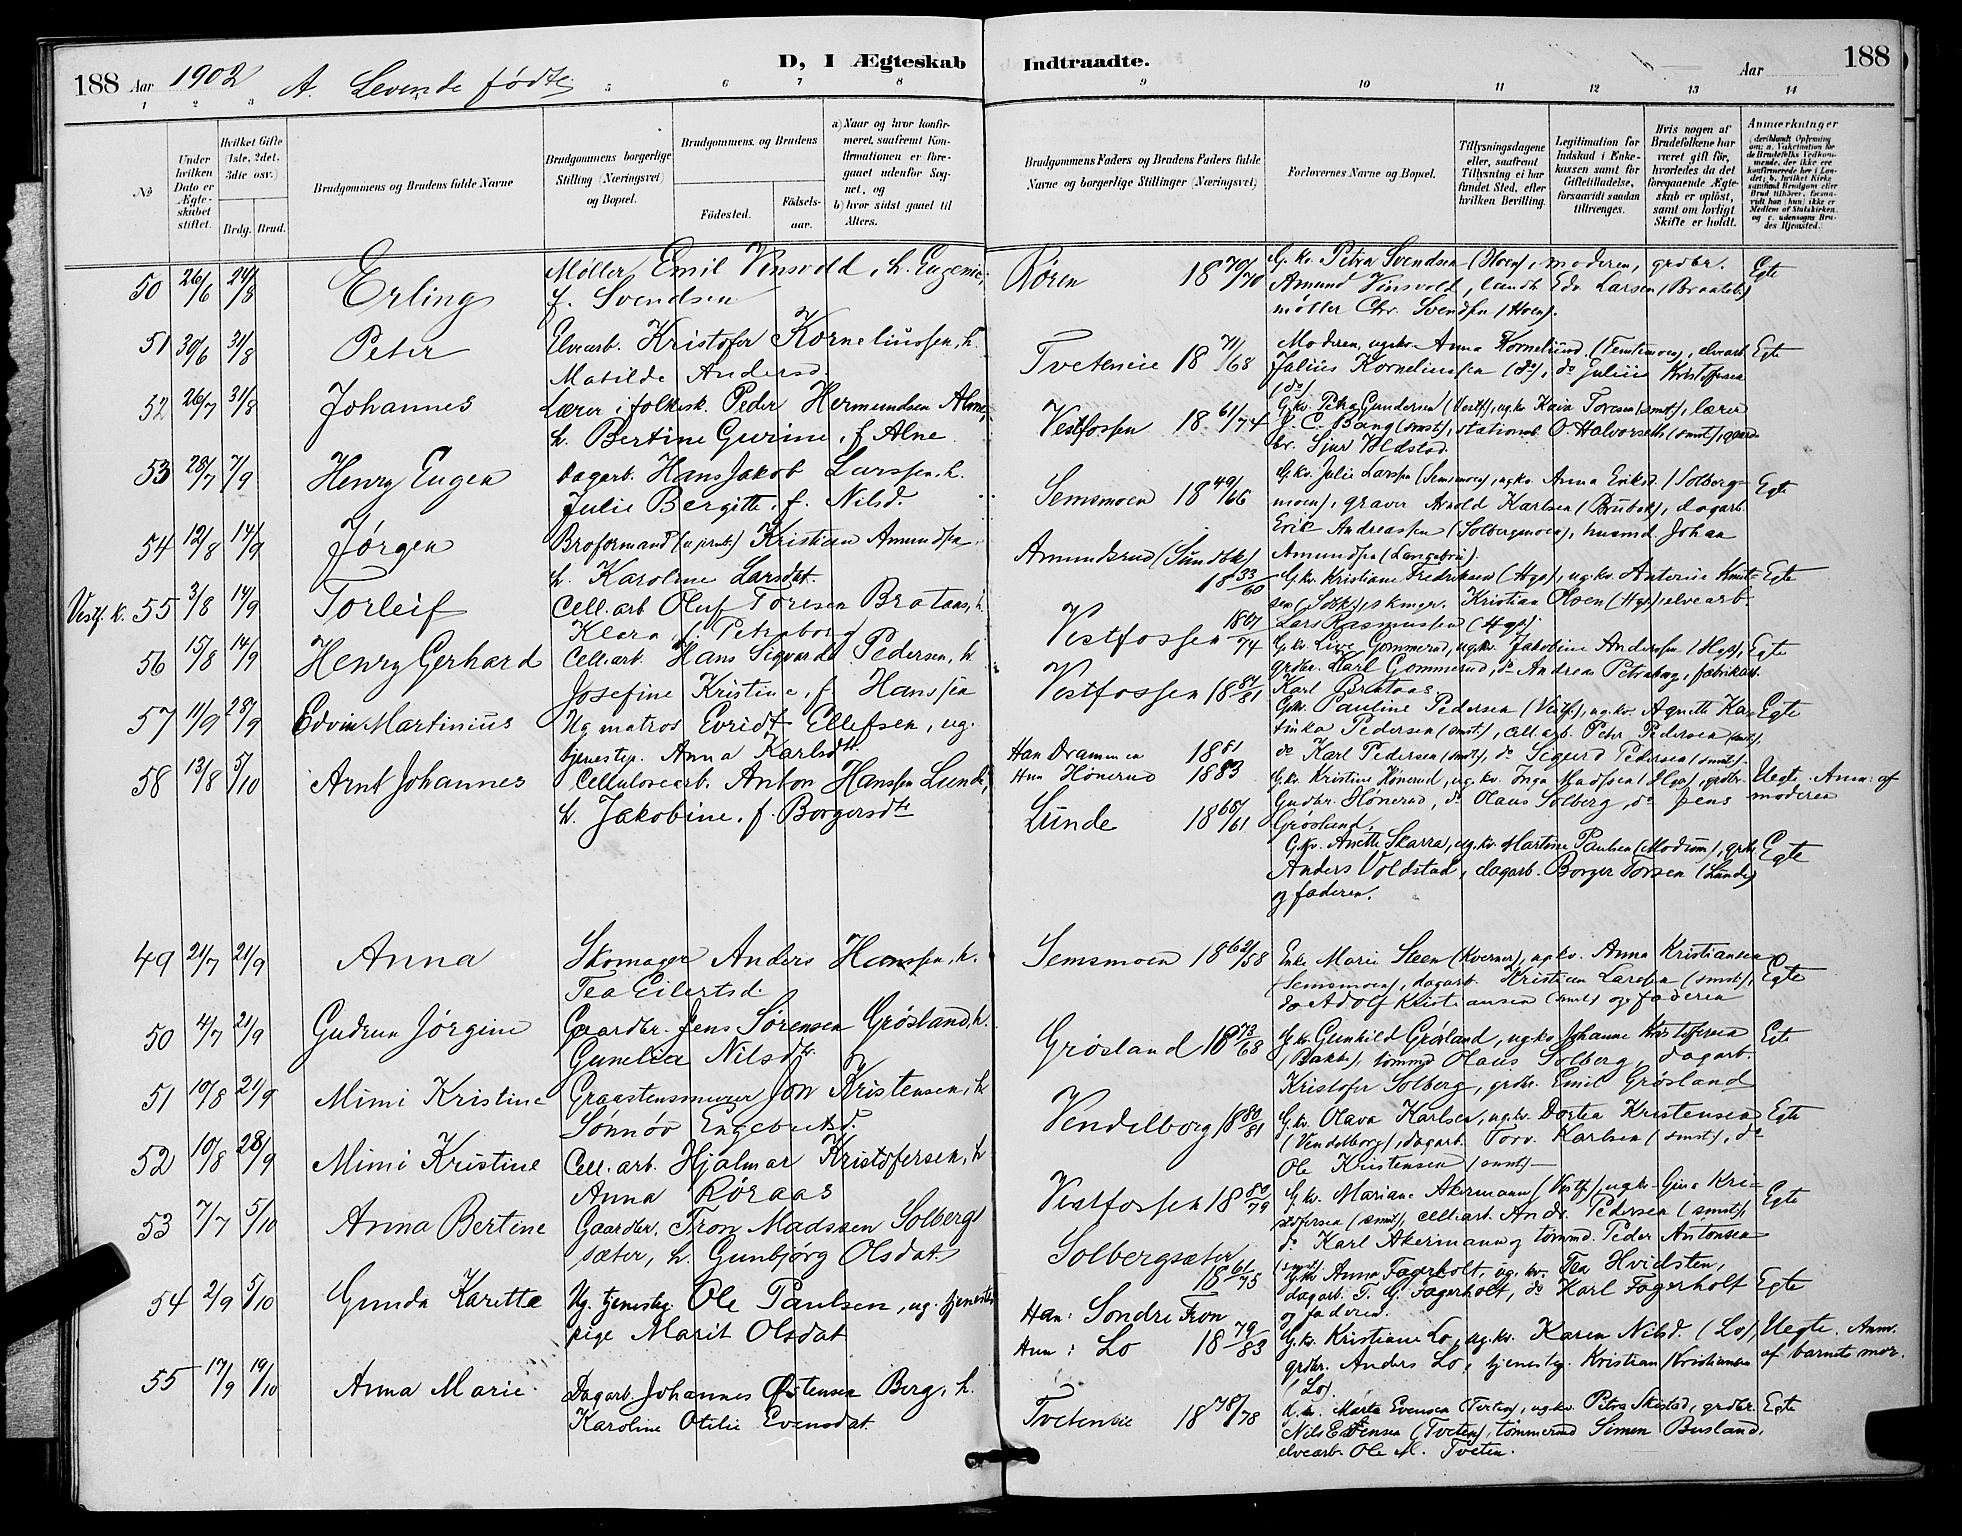 188 Aar 1902 A. Levende fødte
D, I Ægteskab Indtraadte.
Aar 188
1 2 3 5 6 7 8 9 10 11 12 13 14
No
Under hvilken Dato er Ægteskabet stiftet.
Hvilket Gifte (1ste, 2det, 3die osv.)
Brdg. Brud.
Brudgommens og Brudens fulde Navne
Brudgommens borgerlige Stilling (Næringsvei) og Bopæl.
Brudgommens og Brudens
Fødested.
Fødselsaar.
a) Naar og hvor konfirmeret, saafremt Konfirmationen er foregaaet udenfor Sognet, og
b) hvor sidst gaaet til Alters.
Brudgommens Faders og Brudens Faders fulde Navne og borgerlige Stillinger (Næringsvei)
Forlovernes Navne og Bopæl.
Tillysningsdagene eller, saafremt Tillysning ei har fundet Sted, efter hvilken Bevilling.
Legitimation for Indskud i Enkekassen samt for Giftetilladelse, forsaavidt saadan tiltrænges.
Hvis nogen af Brudefolkene har været gift før, hvorledes da det foregaaende Ægteskab er opløst, samt om lovligt Skifte er holdt.
Anmærkninger
50 26/6 24/8 Erling
Møller Emil Vinsvold, h. Eugenie,
f. Svendsen
Røren 18 70/70
G. kv. Petra Svendsen (Hoen), moderen, grdbr.
Amund Vinsvold, landh. Edv. Larsen (Braateb.)
møller Chr. Svendsen (Hoen).
Egte
51 30/6 31/8 Peter
Elvearb. Kristofer Korneliussen, h.
Matilde Andersd.
Tveteneie 18 71/68
Moderen, ug.kv. Anna Kornelius. elvearb.
Julius Korneliussen (do), do Julius Kristoffersen
(do)
Egte
52 26/7 31/8 Johannes
Lærer i folkesk. Peder Hermundsen Alme,
h. Bertine Gurine, f. Alne
Vestfossen 18 61/74
G.kv. Petra Gundersen (Vestf), ug.kv. Kaia Toresen (smst), lærer
J. C. Bang (smst), stationsb. O. Halvorseth (smst), gaardbr. Sjur Voldstad.
53 28/7 7/9 Henry Eugen
Dagarb. Hans Jakob Larssen, h.
Julie Bergitte, f. Nilsd.
Semsmoen 18 49/66
G.kv. Julie Larssen (Semsmoen), ug.kv. Anna Eriksd. (Solbergmoen), graver Arnold Karlsen dagarb.
Erik Andreassen (Solbergmoen), husmd. Johan
Amundsen
Egte
54 12/8 14/9 Jørgen
Broformand Kristian Amundsen,
h. Karoline Larsdat.
Amundsrud (Sundbk)
18 33/60
G.kv. Kristiane Fredriksen (Hgs), ug.kv. Antonie Knutsen Kristian Olsen (Hgs), elvearb.
Lars Rasmussen (Hgs).
Egte
Vestf. k. 55 3/8 14/9 Torleif
Cell.arb Oluf Toresen Brataas, h.
Klara, f. Petraborg
Vestfossen 18 67/74
G.kv. Live Gommerud, ug.kv. Jakobine Anderssen (Hgs),
grdbr. Karl Gommerud, do Andreas Petraborg, fabrikarb.
Karl Brataas.
Egte
56 15/8 14/9 Henry Gerhard
Cell.arb. Hans Sigvard Pedersen, h.
Josefine Kristine, f. Hanssen
Vestfossen 18 81/81
G.kv. Pauline Pedersen (Vestf.), ug.kv. Agnette Katinka Pedersen (smst), cell.arb. Petr Pedersen (smst),
do Karl Pedersen (smst), do Sigurd Pedersen (smst).
Egte
57 11/9 28/9 Edvin Martinius
Ug. matros Evridt Ellefsen, ug.
tjenestep. Anna Karlsdtr.
Han Drammen 18 81
Hun Hønerud 1883
G.kv. Kristine Hønerud, ug.kv. Inga Madssen (Hgs), grdbr.
Gudbr. Hønerud, do Olaus Solberg, do Jens
Grøsland.
Uegte. Anm. af moderen
58 13/8 5/10 Arnt Johannes
Cellulosearb. Anton Hanssen Lunde,
h. Jakobine, f. Borgersdtr
Lunde 18 65/61
G.kv. Anette Skarra, ug.kv. Martine Paulsen (Modum), grdbr.
Anders Voldstad, dagarb. Borger Torsen (Lunde)
og faderen.
Egte
49 21/7 21/9 Anna
Skomager Anders Hanssen, h.
Tea Eilertsd.
Semsmoen 18 62/58
Enke Marie Steen (Kverner), ug.kv. Anna Kristiansen
(Semsmoen), dagarb. Kristian Larssen (smst),
do Adolf Kristiansen (smst) og faderen
Egte
50 4/7 21/9 Gudrun Jørgine
Gaardbr. Jens Sørensen Grøsland, h.
Gunelia Nilsdtr.
Grøsland 18 73/68
G.kv. Gunhild Grøsland, ug.kv. Johanne Kristoffersen
(Bakke), tømmd Olaus Solberg, dagarb.
Kristofer Solberg, grdbr. Emil Grøsland
Egte
51 19/8 21/9 Mimi Kristine
Graastensmurer Jon Kristensen, h.
Sønnøv Engebretsd.
Vendelborg 18 80/81
G.kv. Olava Karlsen, ug.kv. Dortea Kristensen
(Vendelborg), dagarb. Torv. Karlsen (smst), do
Ole Kristensen (smst)
Egte
52 10/8 28/9 Mimi Kristine
Cell.arb. Hjalmar Kristofersen, h.
Anna Røraas
Vestfossen 18 80/79
G.kv. Mariane Akermann (Vestf), ug.kv. Gina Kristofersen (smst), cell.arb. Andr. Pedersen (smst),
do Karl Akermann og tømmd. Peder Antonsen
(smst).
Egte
53 7/7 5/10 Anna Bertine
Gaardbr. Tron Madssen Solbergsæter, h. Gunbjørg Olsdat.
Solbergsæter
18 61/75
G.kv. Anna Fagerholt, ug.kv. Tea Hvidsten,
dagarb. T. G. Fagerholt, do Karl Fagerholt
og faderen.
Egte
54 2/9 5/10 Gunda Karette
Ug. tjenesteg. Ole Paulsen, ug. tjenestepige Marit Olsdat
Han: Søndre Fron
Hun: Lo 18 79/83
G.kv. Kristiane Lo, ug.kv. Karen Nilsd. (Lo),
grdbr. Anders Lo, tjenesteg. Kristian Kristiansen
(Lo).
Uegte. Anm. af barnets mor.
55 17/9 19/10 Anna Marie
Dagarb. Johannes Østensen Berg, h.
Karoline Otilie Evensdat.
Tveteneie 18 78/78
G.kv. Marta Evensen (Tveten), ug.kv. Petra Skistad, grdbr.
Nils Evensen (Tveten), tømmermd Simen Busland,
elvearb. Ole M. Tveten.
Egte